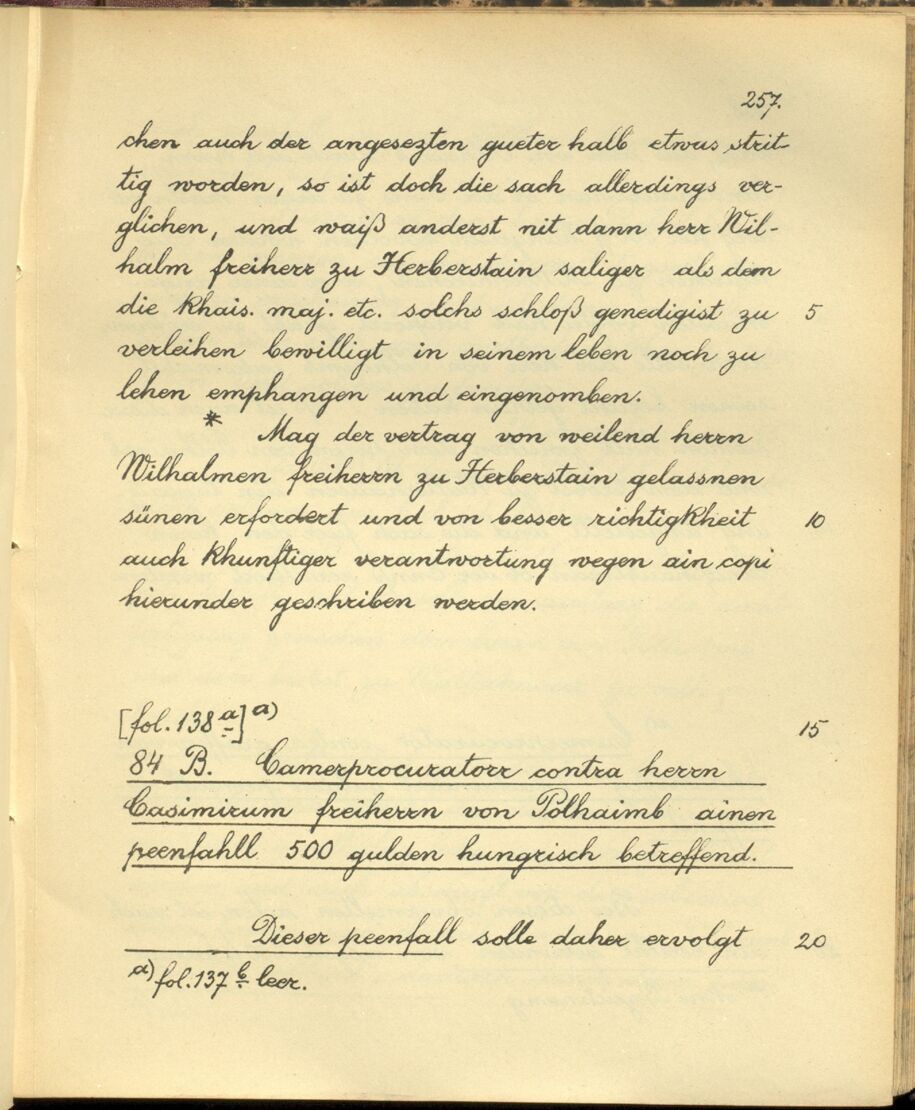 257.
chen auch der angesezten gueter halb etwas strit-
tig worden, so ist doch die sach allerdings ver-
glichen, und waiß anderst nit dann herr Wil-
halm freiherr zu Herberstain saliger als dem
die khais. maj. etc. solchs schloß genedigist zu 5
verleihen bewilligt in seinem leben noch zu
lehen emphangen und eingenomben.
* Mag der vertrag von weilend herrn
Wilhalmen freiherrn zu Herberstain gelassnen
sünen erfordert und von besser richtigkheit 10
auch khunftiger verantwortung wegen ain copi
hierunder geschriben werden.
[fol. 138 a] a) 15
84 B. Camerprocuratorr contra herrn
Casimirum freiherrn von Polhaimb ainen
peenfahll 500 gulden hungrisch betreffend.
Dieser peenfall solle daher ervolgt 20
a) fol. 137 b leer.